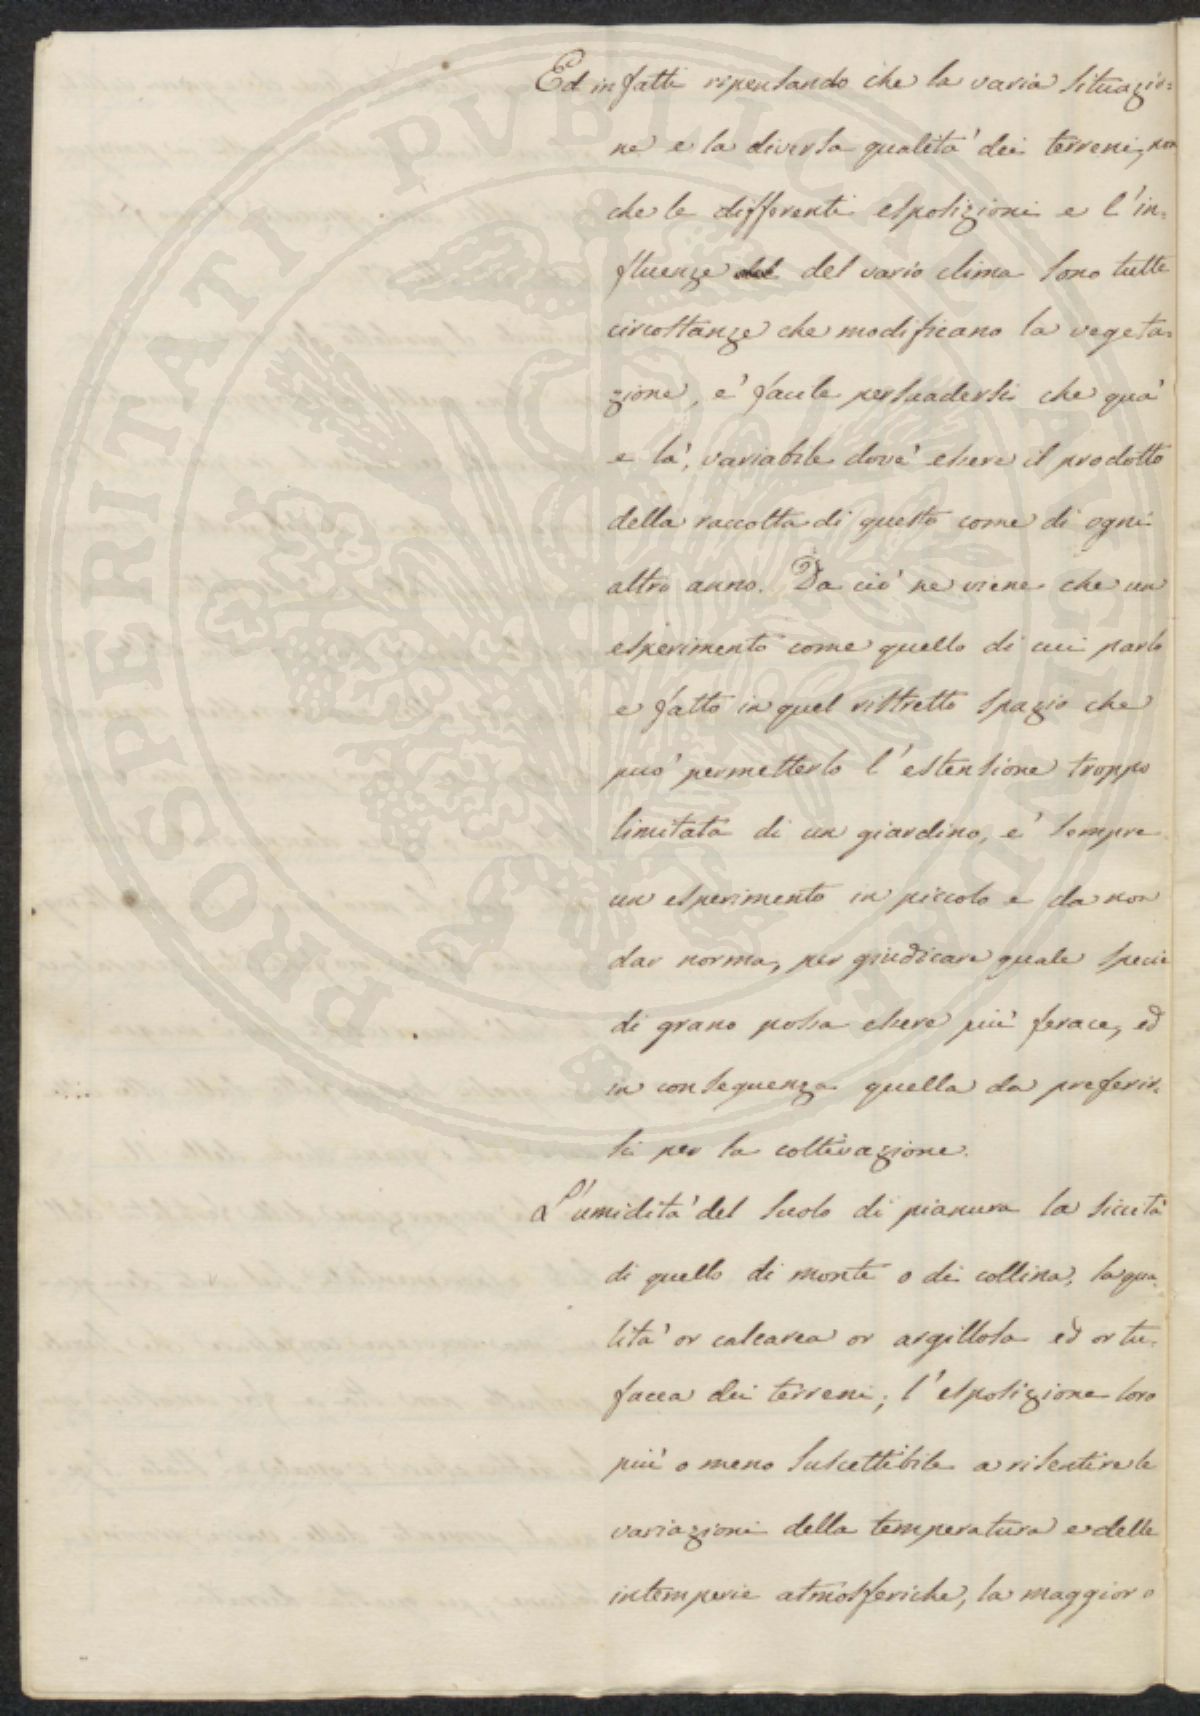 Ed in fatti ripensando che la varia situazio=
ne e la diversa qualità dei terreni, non
che le differenti esposizioni e l'in=
fluenze del del vario clima sono tutte
circostanze che modificano la vegeta=
zione, e' facile persuadersi che quà
e là, variabile dovè essere il prodotto
della raccolta di questo come di ogni
altro anno. Da ciò ne viene che un
esperimento come quello di cui parlo
e fatto in quel ristretto spazio che
può permetterlo l'estensione troppo
limitata di un giardino, e' sempre
un esperimento in piccolo e da non
dar norma, per giudicare quale specie
di grano possa essere più ferace, ed
in conseguenza quella da preferir=
si per la coltivazione.
L'umidità del suolo di pianura la siccità
di quello di monte o di collina, la qua=
lità or calcarea or argillosa ed or tu=
facea dei terreni; l'esposizione loro
più o meno suscettibile a risentire le
variazioni della temperatura e delle
intemperie atmosferiche, la maggior o
PROSPERITATI PVBLICAE AVGENDAE